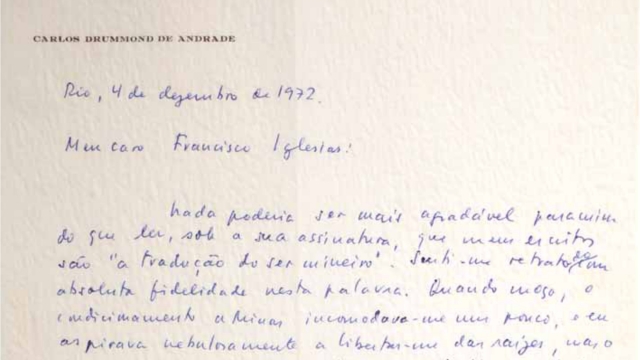 CARLOS DRUMMOND DE ANDRADE
Rio, 4 de dezembro de 1972.
Meu caro Francisco Iglésias:
Nada poderia ser mais agradável para mim
do que ler, sob a sua assinatura, que meus escritos
são "a tradução do ser mineiro". Senti-me retratado com
absoluta fidelidade nesta palavra. Quando moço, o
condicionamento a Minas incomodava-me um pouco, e eu
aspirava nebulosamente a libertar-me das raízes, mas o